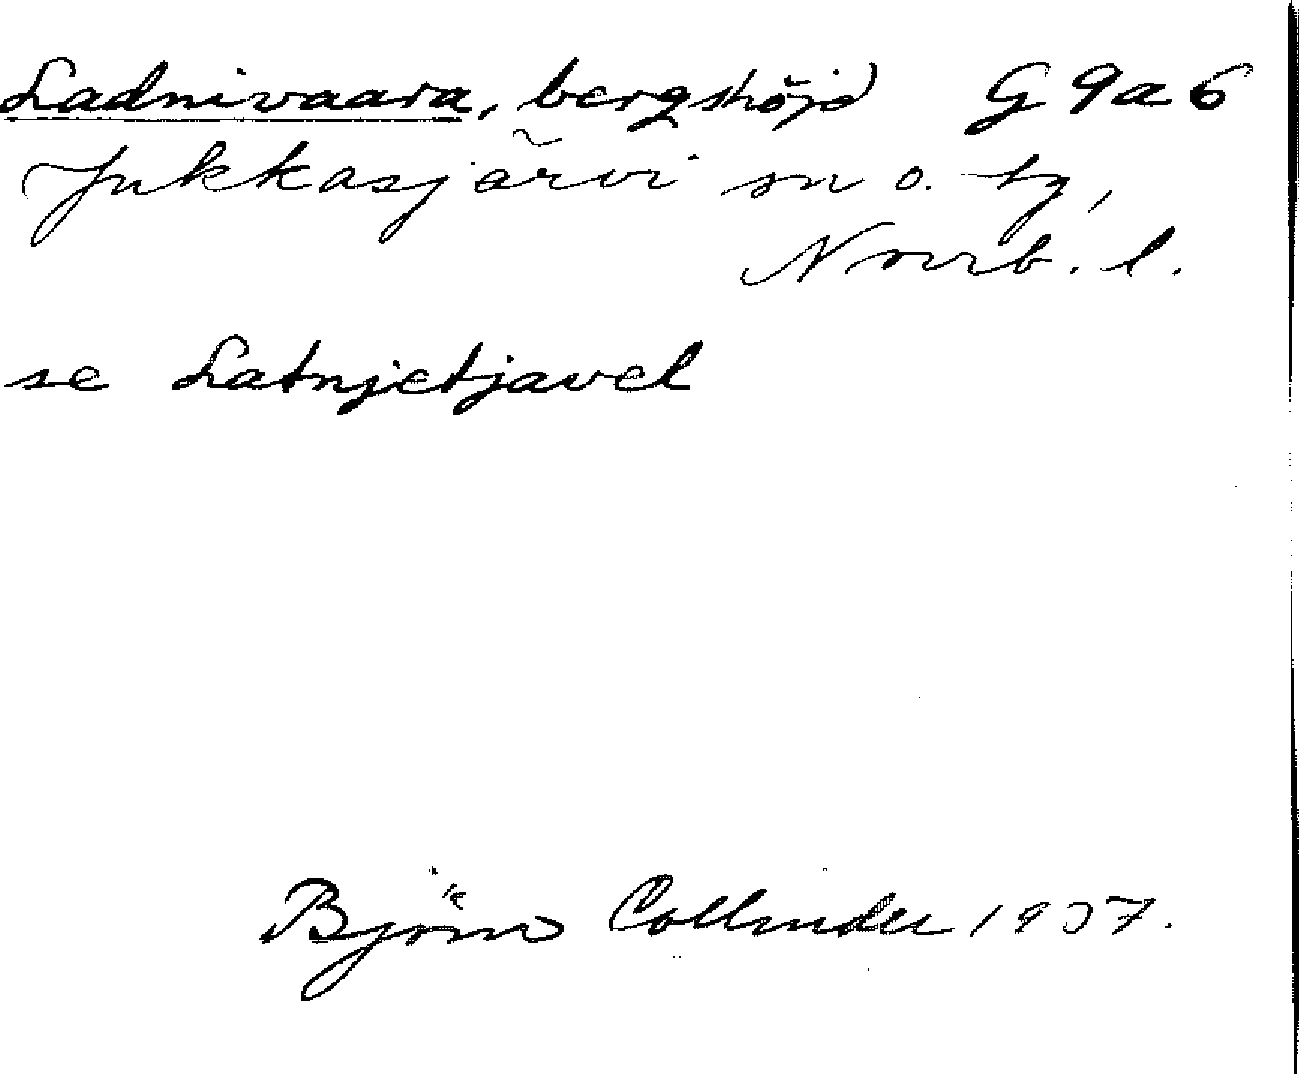 Ladnivaara, bergshöjd G 9 a 6
Jukkasjärvi sn o. tg,
Norrb. l.
se Latnjetjavel
Björn Collinder 1937.